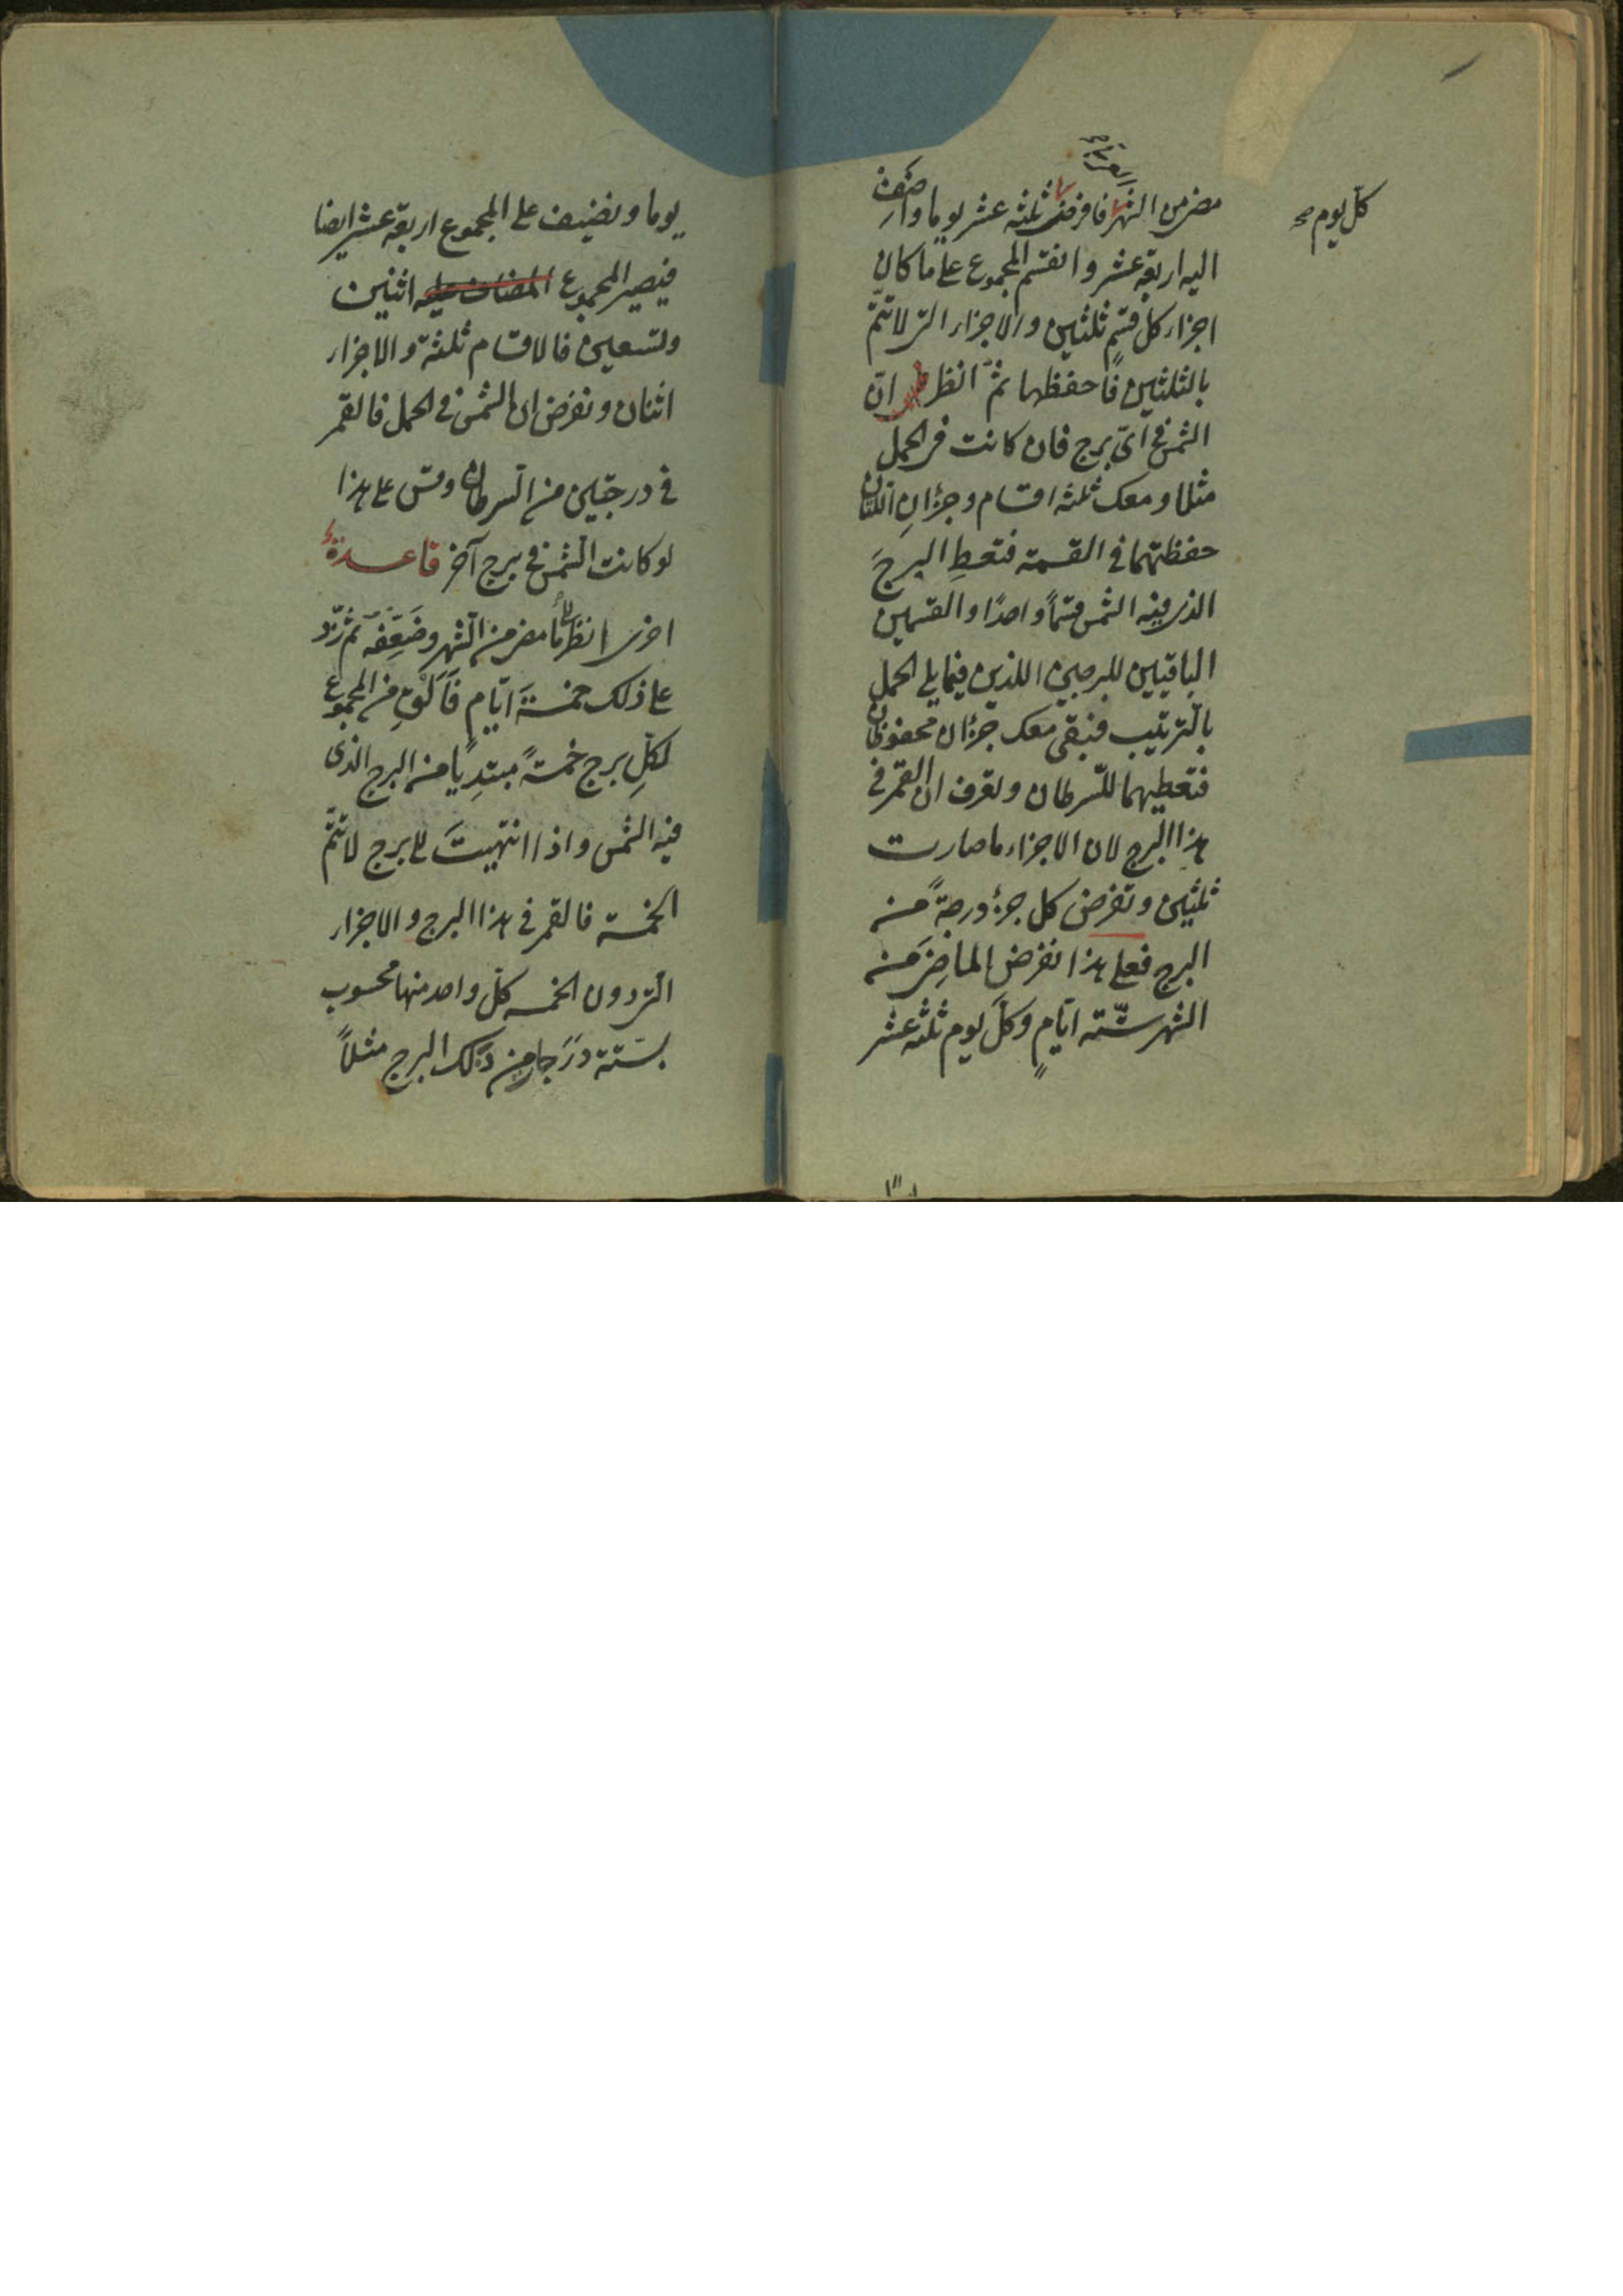 كل يوم صح
مضى من الشهر فافرض ثلثة عشر يوما واضف
اليه اربعة عشر وانقسم المجموع على ما كان
اجزاء كل قسم ثلثين والاجزاء التى لا تتم
بالثلثين فاحفظها ثم انظر ان
الشمس فى اى برج فان كانت فى الحمل
مثلا ومعك ثلثة اقسام وجزءان اللتان
حفظتهما فى القسمة فتعط البرج
الذى فيه الشمس قسماً واحدًا والقسمين
الباقيين للبرجين اللذين فيما يلى الحمل
بالترتيب فتبقى معك جزءان محفوظان
فتعطيهما للسّرطان وتعرف ان القمر فى
هذا البرج لان الاجزاء ما صارت
ثلثين وتفرض كل جزء درجةً من
البرج فعلى هذا نفرض الماضى من
الشهر ستّة ايّامٍ وكلّ يوم ثلثة عشر
يوما ونضيف على المجموع اربعة عشر ايضا
فيصير المجموع المضاف عليه اثنين
وتسعين فالاقسام ثلثة والاجزاء
اثنان ونفرض ان الشمس فى الحمل فالقمر
فى درجتين من السرطان وقس على هذا
لو كانت الشمس فى برج آخر قاعدة
اخرى انظر الى ما مضى من الشهر وضعّفه ثم زد
على ذلك خمسة ايّام فالق من المجموع
لكلّ برج خمسةً مبتديًا من البرج الذى
فيه الشمس واذا انتهيتَ الى برج لا تتم
الخمسة فالقمر فى هذا البرج والاجزاء
التى دون الخمسه كلّ واحد منها محسوب
بستة درجا من ذلك البرج مثلاً